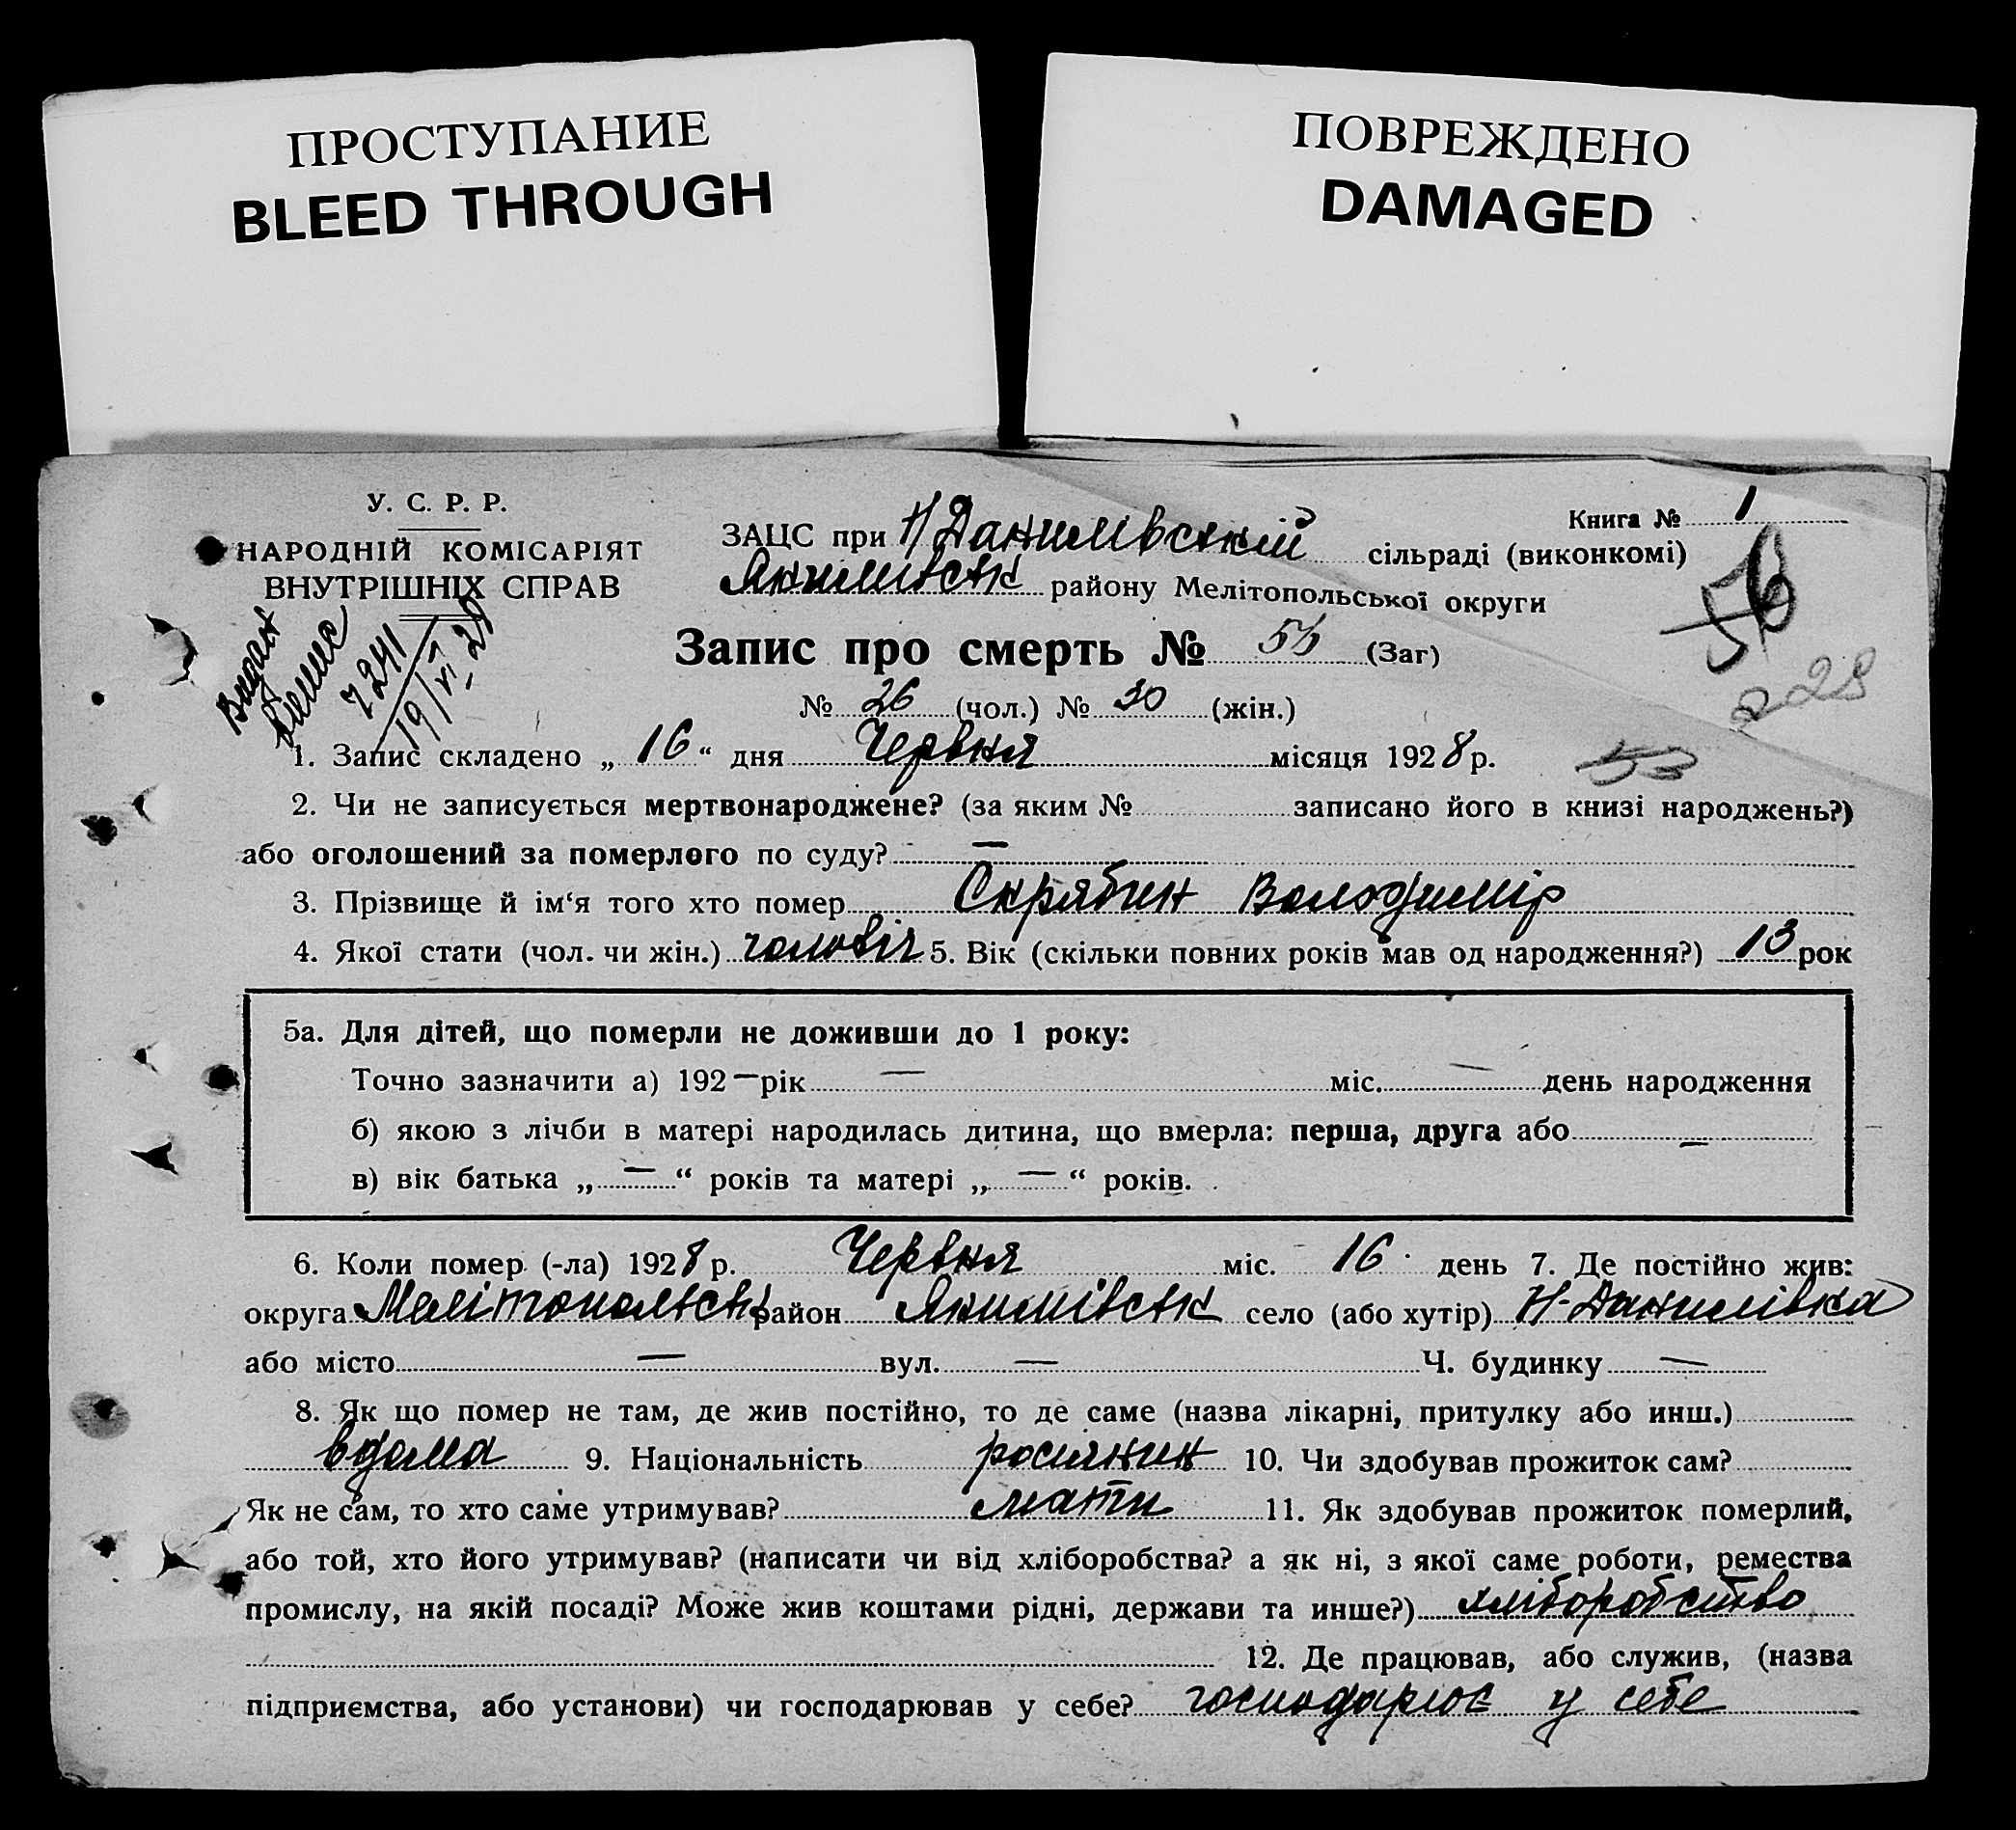 ПРОСТУПАНИЕ
BLEED THROUGH
ПОВРЕЖДЕНО
DAMAGED
У. С. Р. Р.
НАРОДНІЙ КОМІСАРІЯТ
ВНУТРІШНІХ СПРАВ
Видан
7241
19/VI 28
ЗАЦС при Н Данилівській сільраді (виконкомі)
Книга № 1
Якимівськ району Мелітопольської округи
56
228
Запис про смерть № 56 (Заг)
№ 26 (чол.) № 30 (жін.)
1. Запис складено „ 16 “ дня Червня місяця 1928 р.
53
2. Чи не записується мертвонароджене? (за яким № записано його в книзі народжень?)
або оголошений за померлого по суду? —
3. Прізвище й ім‘я того хто помер Скрябин Володимір
4. Якої стати (чол. чи жін.) чоловіч 5. Вік (скільки повних років мав од народження?) 13 рок
5а. Для дітей, що померли не доживши до 1 року:
Точно зазначити а) 192 — рік — міс. — день народження
б) якою з лічби в матері народилась дитина, що вмерла: перша, друга або —
в) вік батька „ — “ років та матері „ — “ років.
6. Коли помер (-ла) 1928 р. Червня міс. 16 день 7. Де постійно жив:
округа Мелітопольськ район Якимівськ село (або хутір) Н-Данилівка
або місто — вул. — Ч. будинку —
8. Як що помер не там, де жив постійно, то де саме (назва лікарні, притулку або инш.)
вдома 9. Національність росіянин 10. Чи здобував прожиток сам?
Як не сам, то хто саме утримував? мати 11. Як здобував прожиток померлий,
або той, хто його утримував? (написати чи від хліборобства? а як ні, з якої саме роботи, ремества
промислу, на якій посаді? Може жив коштами рідні, держави та инше?) хліборобство
12. Де працював, або служив, (назва
підприємства, або установи) чи господарював у себе? господарює у себе